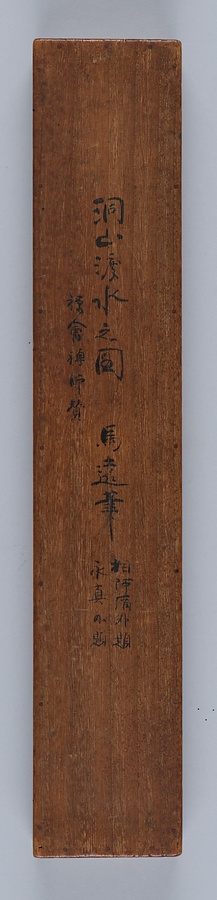 洞山渡水之圖 馬遠筆
禅會禅師賛
相阿弥外題
永真小出